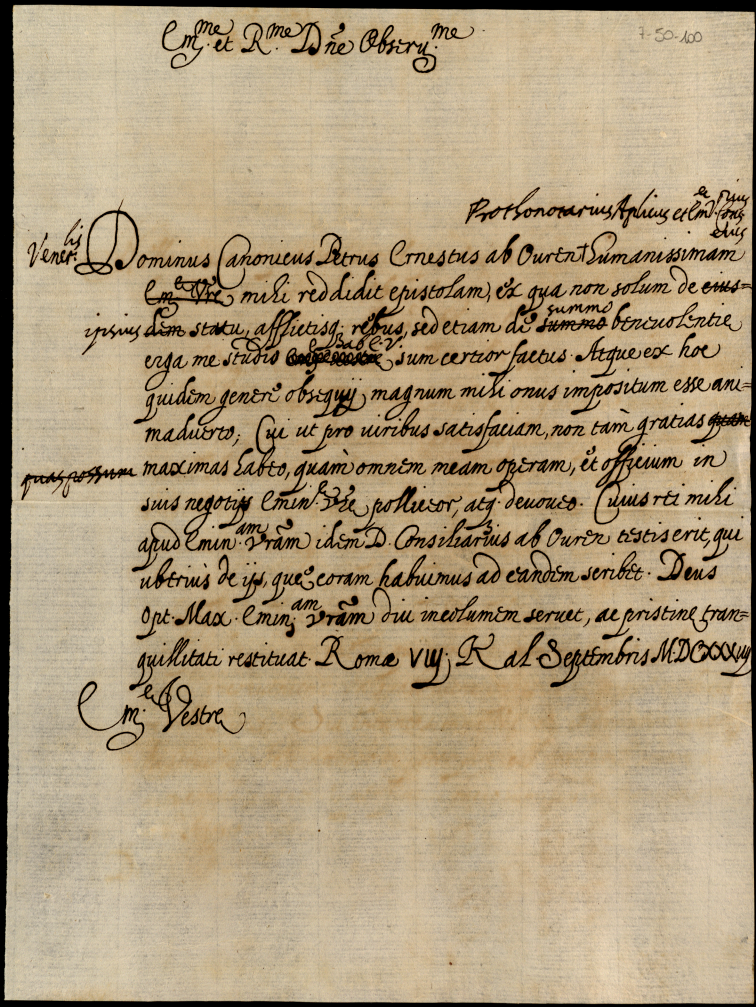 7-50-100
Em.me et R.me Dñe Obseru.me
Prothonotarius Aplicus et Em.e V.
Vener.lis Dominus Canonicus Petrus Ernestus ab Ouren † humanissimam
Em.e Vrē mihi reddidit epistolam, ex qua non solum de eius=
ipsius dem statu, afflictisq; rebus, sed etiam de summo summo beneuolentie
erga me studio ab E. V. sum certior factus. Atque ex hoc
quidem genere obsequij magnum mihi onus impositum esse ani=
maduerto; Cui ut pro uiribus satisfaciam, non tam gratias quam
quas possum maximas habeo, quam omnem meam operam, et officium in
suis negotijs Emin.e Vrē polliceor, atq; deuoueo. Cuius rei mihi
apud Emin.am Vrām idem D. Consiliarius ab Ouren testis erit, qui
uberius de ijs, que coram habuimus ad eandem scribet. Deus
Opt. Max. Emin.am Vrām diu incolumem seruet, ac pristine tran=
quillitati restituat. Romæ VIIJ; Kal Septembris M.DCXXXIIIJ
Em.e Vestre